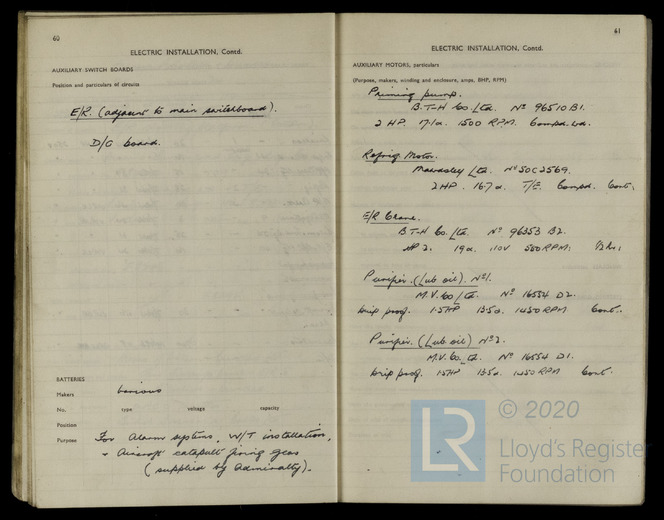 60
ELECTRIC INSTALLATION, Contd.
AUXILIARY SWITCH BOARDS
Position and particulars of circuits
E/R. (adjacent to main switchboard).
D/C board.
BATTERIES
Makers various
No. type voltage capacity
Position
Purpose For alarm systems, W/T installation,
& Aircraft catapult firing gear
(supplied by Admiralty).
61
ELECTRIC INSTALLATION, Contd.
AUXILIARY MOTORS, particulars
(Purpose, makers, winding and enclosure, amps, BHP, RPM)
Priming pump.
B.T-H Co. Ltd. Nº 96510 B1.
2 HP. 17.1a. 1500 RPM. Compd. wd.
Refrig Motor.
Mawdsley Ltd. Nº 50C2569.
2HP. 16.7a. T/E. Compd. Cont.
E/R Crane.
B.T-H Co. Ltd. Nº 96353 B2.
HP 2. 19a. 110V 550 RPM. 1/2 hr.
Purifier. (Lub oil). Nº1.
M.V. Co Ltd. Nº 16554 D2.
drip proof. 1.5HP 13.5a. 1450 RPM Cont.
Purifier. (Lub oil) Nº2.
M.V. Co. Ltd. Nº 16554 D1.
drip proof. 1.5HP 13.5a. 1450 RPM Cont.
LR
© 2020
Lloyd's Register
Foundation